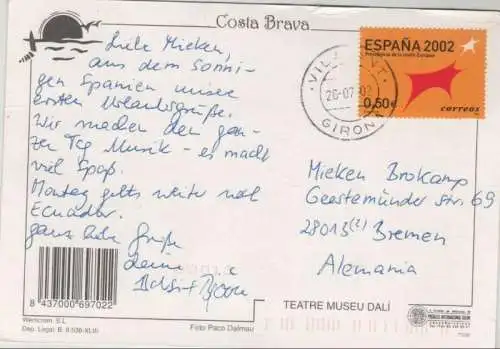 Costa Brava
Liebe Mieken,
aus dem sonni-
gen Spanien unsere
ersten Urlaubsgrüße.
Wir machen den gan-
zen Tag Musik - es macht
viel Spaß.
Montag geht's weiter nach
Ecuador.
ganz liebe Grüße
deine
ESPAÑA 2002
Presidencia de la Unión Europea
0,50€
correos
26-07-02
GIRONA
Mieken Brokamp
Geestemünder str. 69
28013 Bremen
Alemania
8 437000 697022
Dep. Legal: B. 8.536-XLIII
Foto Paco Dalmau
TEATRE MUSEU DALÍ